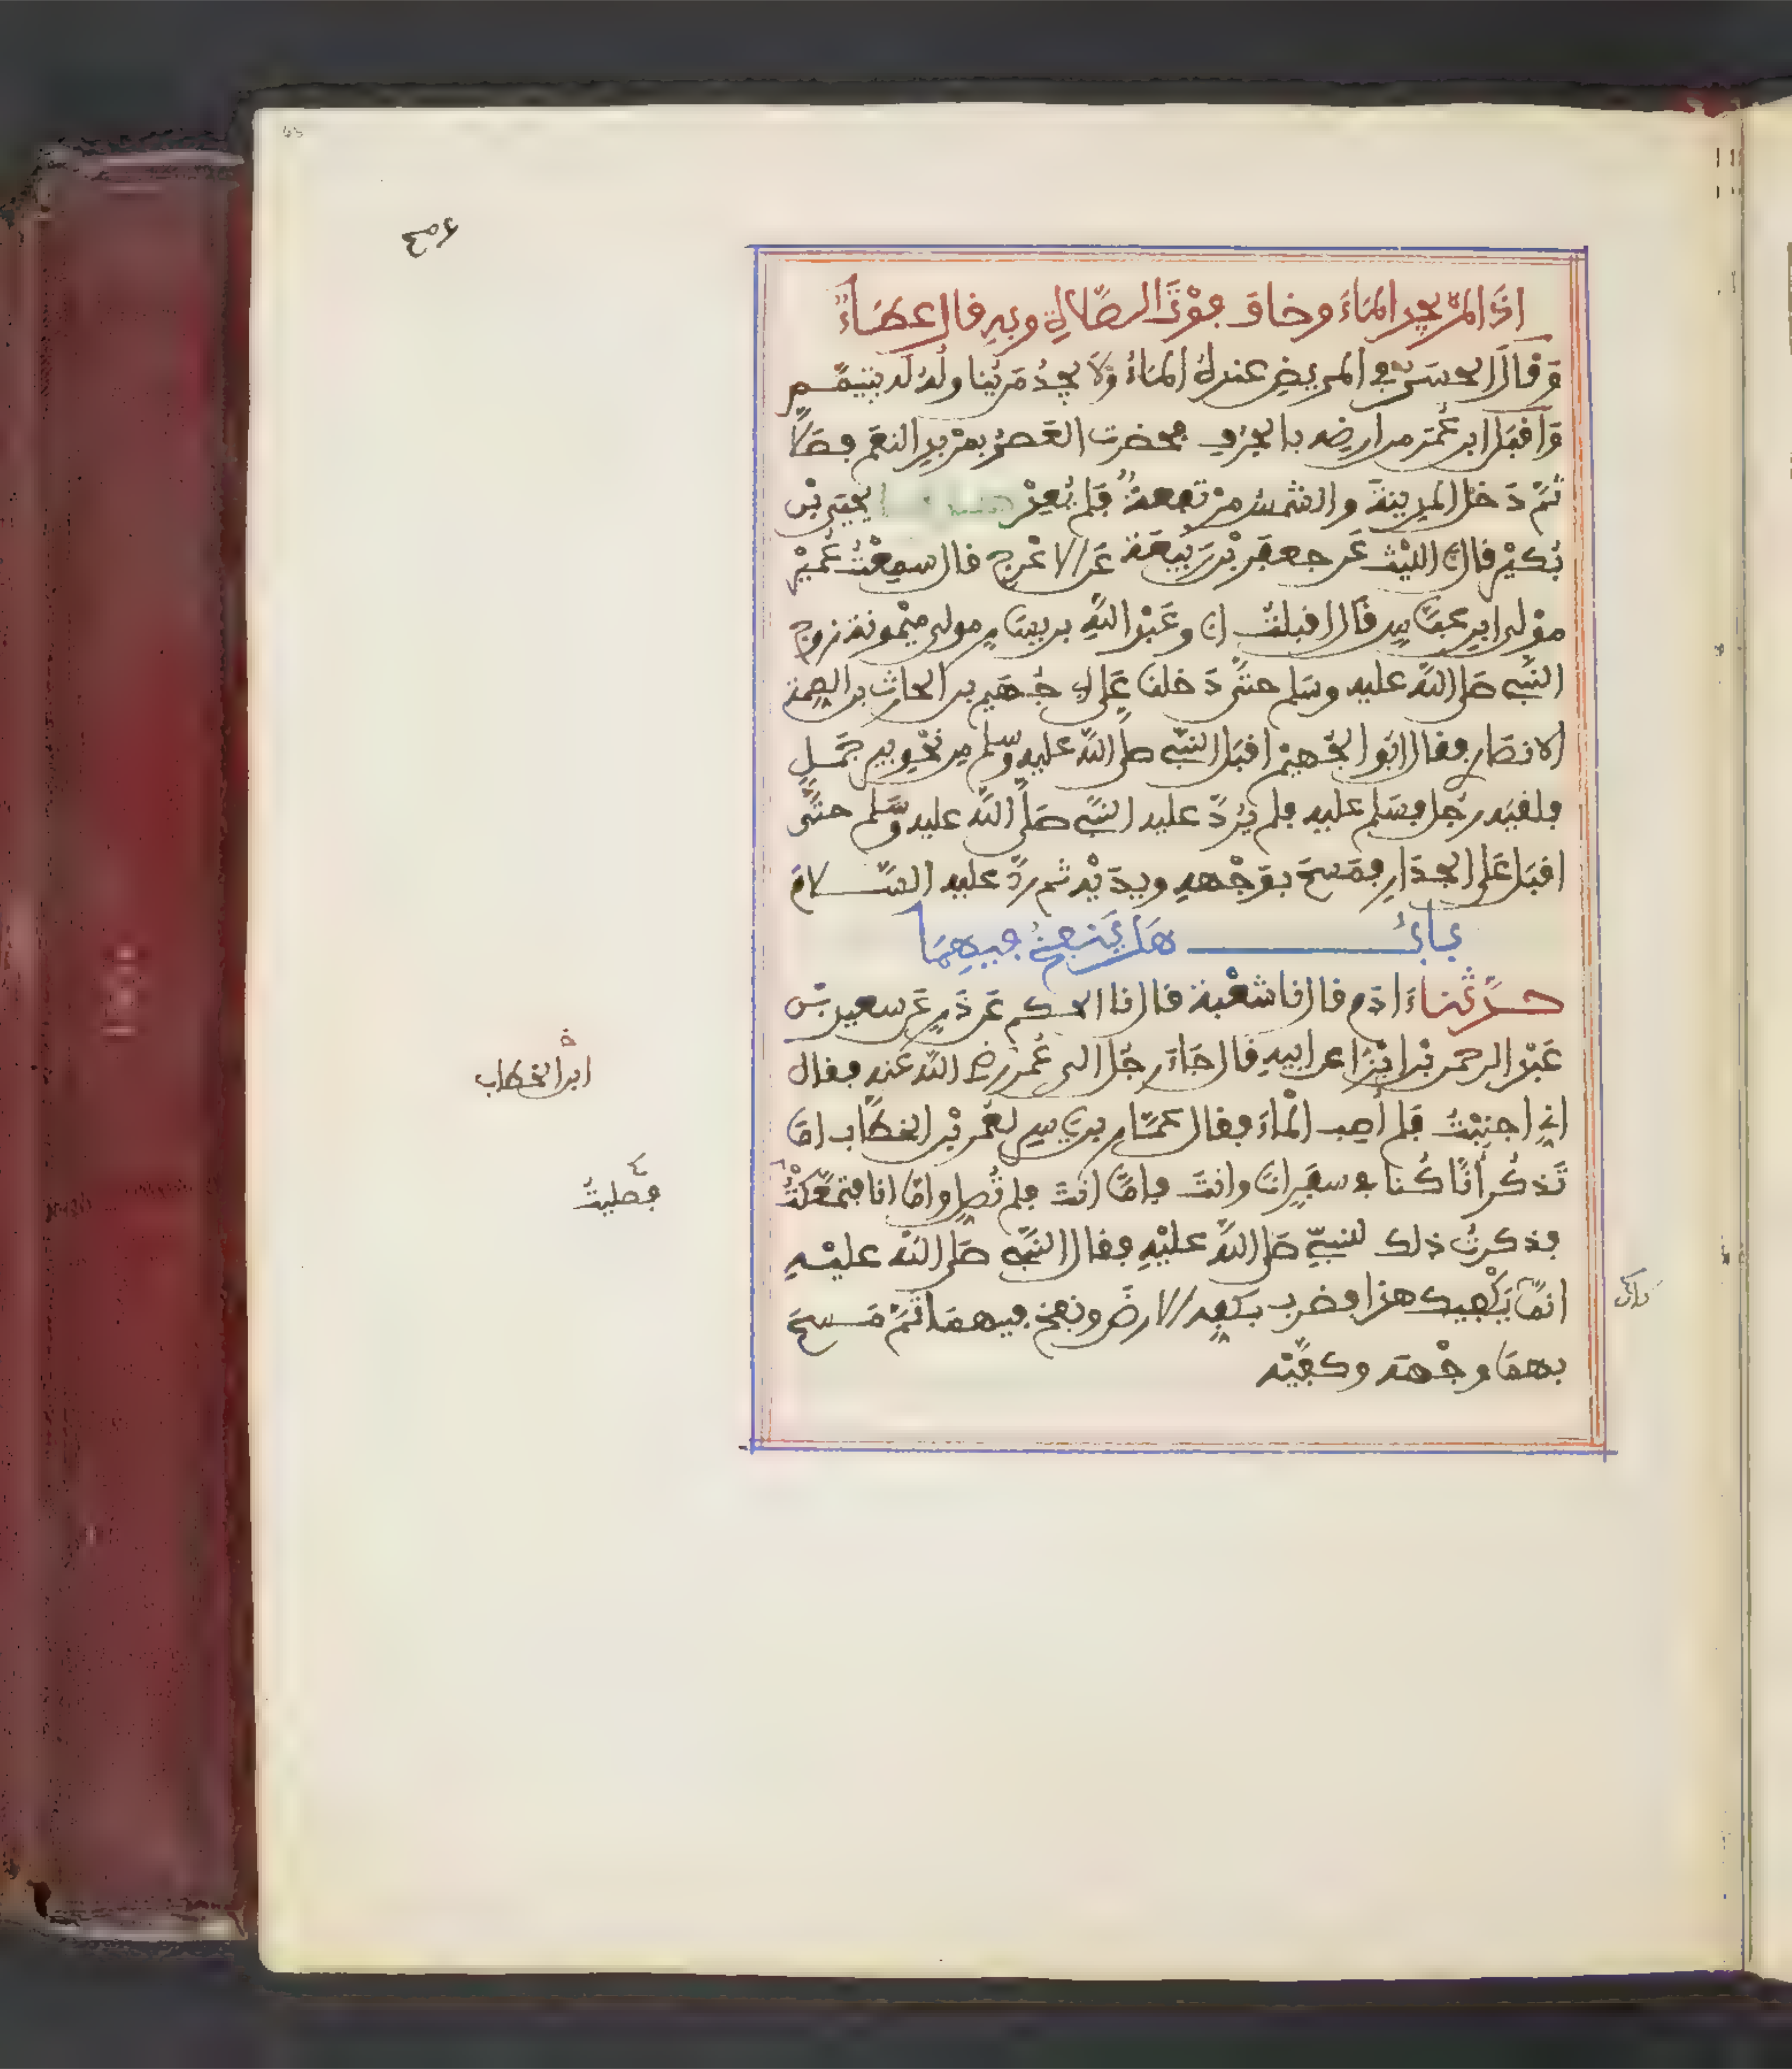 اذا لم يجد الماء وخاف فوت الصلاة وبه قال عطاء
وقال الحسن في المريض عنده الماء ولا يجد من يناوله له يتيمم
واقبل ابن عمر من ارضه بالجرف فحضرت العصر بمربد النعم فصلا
ثم دخل المدينة والشمس مرتفعة فلم يعد يحيى بن
بكير قال نا الليث عن جعفر بن ربيعة عن الاعرج قال سمعت عمير
مولى ابن عباس قال اقبلت انا وعبد الله بن يسار مولى ميمونة زوج
النبي صلى الله عليه وسلم حتى دخلنا على ابي جهيم بن الحارث بن الصمة
الانصاري فقال ابو الجهيم اقبل النبي صلى الله عليه وسلم من نحو بير جمل
فلقيه رجل فسلم عليه فلم يرد عليه النبي صلى الله عليه وسلم حتى
اقبل على الجدار فمسح بوجهه ويديه ثم رد عليه السلام
باب هل ينفخ فيهما
حدثنا ءادم قال نا شعبة قال نا الحكم عن ذر عن سعيد بن
عبد الرحمن بن ابزا عن ابيه قال جاء رجل الى عمر رضي الله عنه فقال
اني اجنبت فلم اصب الماء فقال عمار بن ياسر لعمر بن الخطاب اما
تذكر انا كنا في سفر انا وانت فاما انت فلم تصل واما انا فتمعكت
فذكرت ذلك للنبي صلى الله عليه فقال النبي صلى الله عليه
انما يكفيك هذا فضرب بكفيه الارض ونفخ فيهما ثم مسح
بهما وجهه وكفيه
ابن الخطاب
فصليت